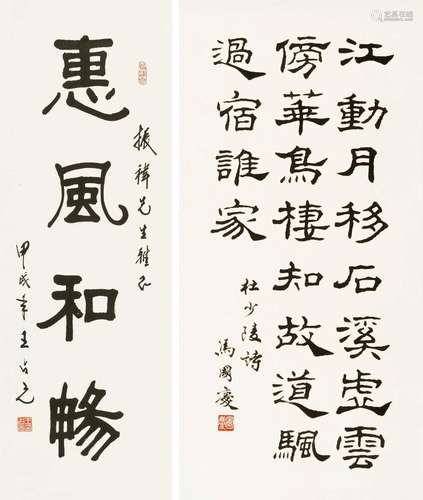 江動月移石溪虛雲
傍華鳥棲知故道颿
過宿誰家
杜少陵詩
馮國慶
振禕先生雅正
惠風和暢
甲戌年王占元